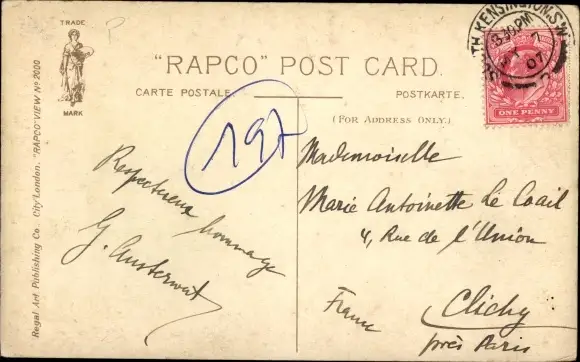 TRADE
MARK
Regal Art Publishing Co. City London. "RAPCO" VIEW Nº 2000
P
"RAPCO" POST CARD.
CARTE POSTALE.
POSTKARTE.
(FOR ADDRESS ONLY.)
SOUTH KENSINGTON.S.W
3.30PM
07
ONE PENNY
197
Respectueux
hommage
Mademoiselle
Marie Antoinette Le Coail
4, Rue de l'Union
Clichy
France
près Paris